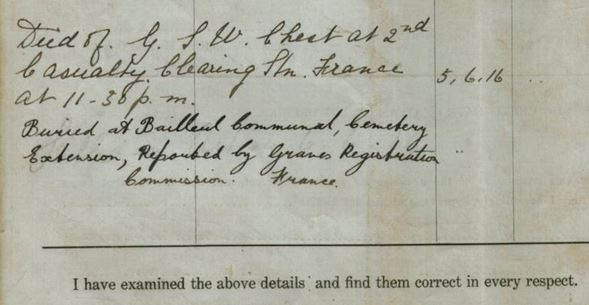 Died of. G. S. W. Chest at 2nd
Casualty Clearing Stn. France 5.6.16 ..
at 11-30 p.m.
Buried at Bailleul Communal, Cemetery
Extension, Reported by Graves Registration "
Commission. France.
I have examined the above details and find them correct in every respect.